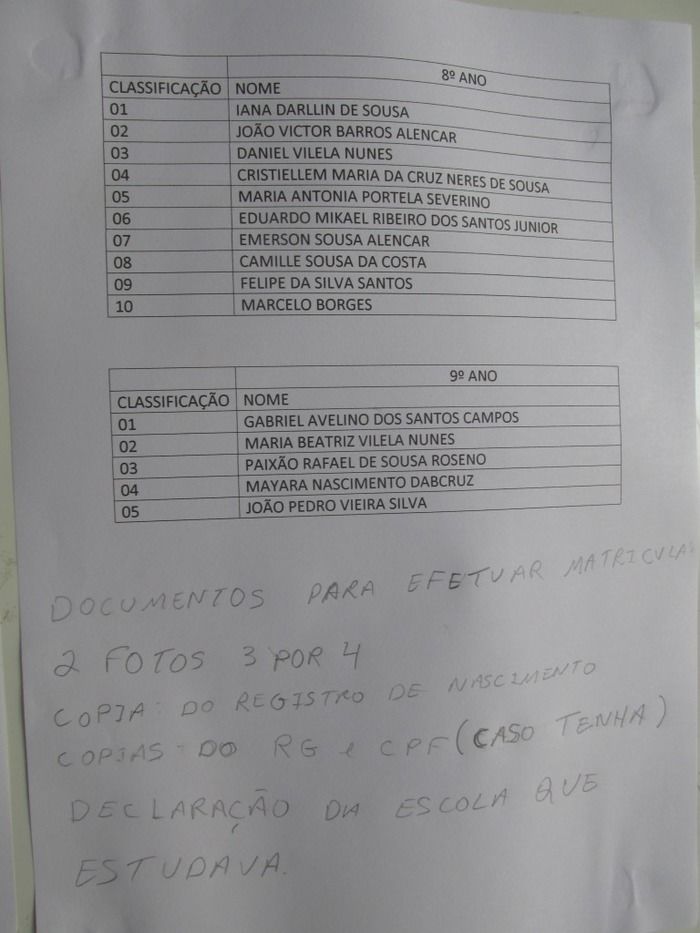 8º ANO
CLASSIFICAÇÃO NOME
01 IANA DARLLIN DE SOUSA
02 JOÃO VICTOR BARROS ALENCAR
03 DANIEL VILELA NUNES
04 CRISTIELLEM MARIA DA CRUZ NERES DE SOUSA
05 MARIA ANTONIA PORTELA SEVERINO
06 EDUARDO MIKAEL RIBEIRO DOS SANTOS JUNIOR
07 EMERSON SOUSA ALENCAR
08 CAMILLE SOUSA DA COSTA
09 FELIPE DA SILVA SANTOS
10 MARCELO BORGES
9º ANO
CLASSIFICAÇÃO NOME
01 GABRIEL AVELINO DOS SANTOS CAMPOS
02 MARIA BEATRIZ VILELA NUNES
03 PAIXÃO RAFAEL DE SOUSA ROSENO
04 MAYARA NASCIMENTO DABCRUZ
05 JOÃO PEDRO VIEIRA SILVA
DOCUMENTOS PARA EFETUAR MATRICULAS
2 FOTOS 3 POR 4
COPIA: DO REGISTRO DE NASCIMENTO
COPIAS: DO RG e CPF (CASO TENHA)
DECLARAÇÃO DA ESCOLA QUE
ESTUDAVA.